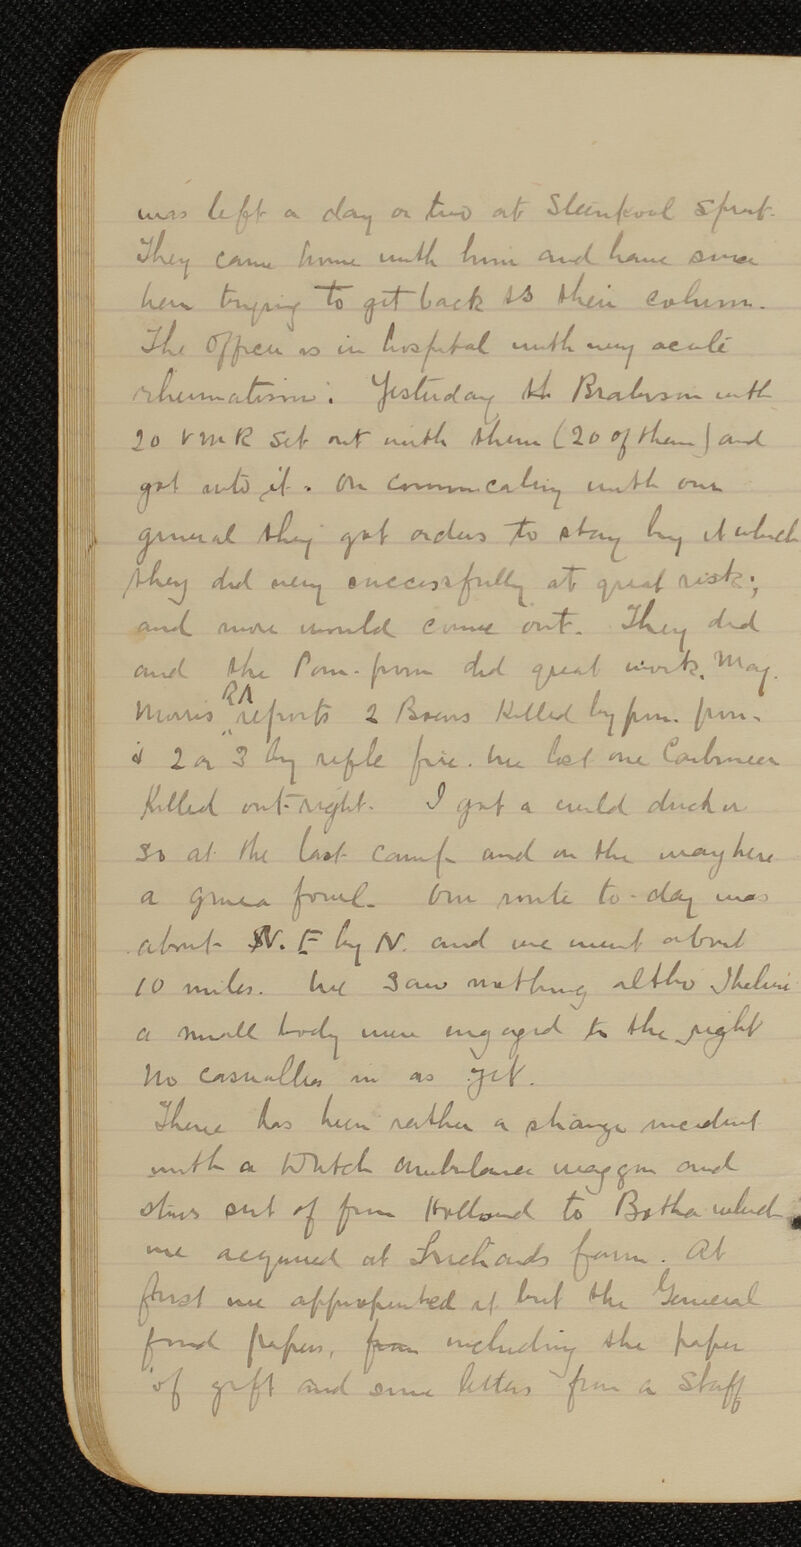 was left a day or two at Steenkool Spruit.
They came home with him and have since
been trying to get back to their column.
The Officer is in hospital with very acute
rheumatism. Yesterday th Brabason with
20 VMR set out with them (20 of them) and
got into it. On commicating with our
general they got orders to stay by it which
they did very successfully at great risk;
and more would come out. They did
and the Pom-pom did great work. Maj.
Morris RA reports 2 Boers killed by pom-pom
& 2 or 3 by rifle fire. We lost one Carbineer
killed out-right. I got a wild duck or
so at the last camp and on the way here
a guinea fowl. Our route to-day was
about N. E by N. and we went about
10 miles. We saw nothing altho I believe
a small body were engaged to the right
No casualties in as yet.
There has been rather a strange incident
with a Dutch Ambulance waggon and
stores sent of from Holland to Botha which
we acquired at Trichards farm. At
first we appropriated it but the General
found papers, from including the paper
of gift and some letters from a Staff